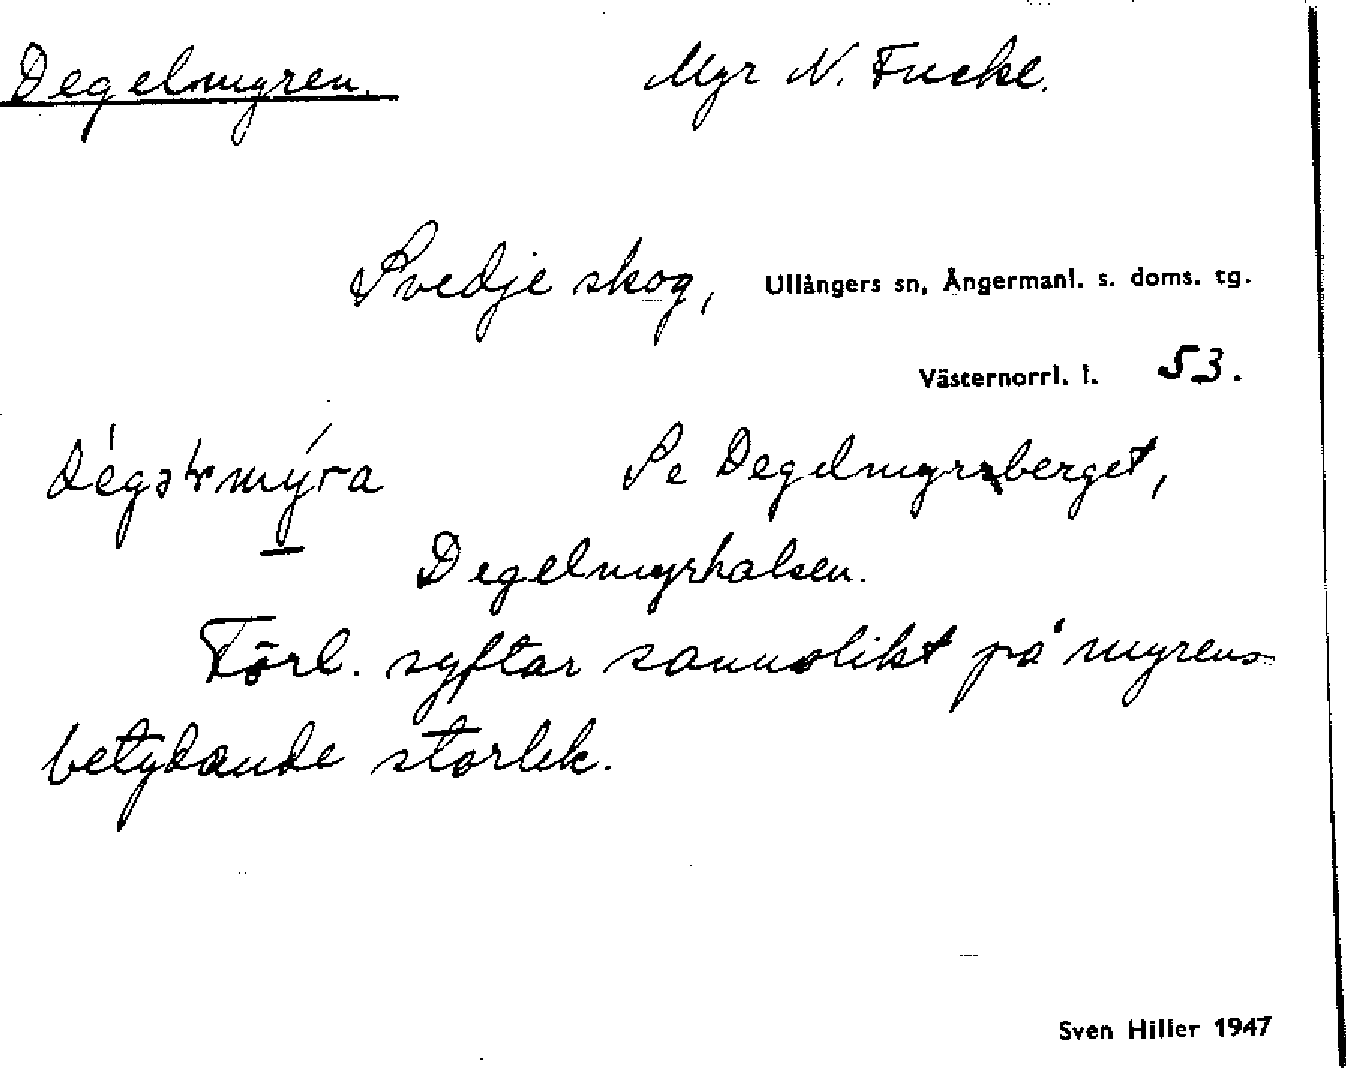 Degelmyren. Myr N. Fuckl.
Svedje skog, Ullångers sn, Ångermanl. s. doms. tg.
Västernorrl. l. 53.
Se Degelmyrberget,
Degelmyrhalsen.
Förl. syftar sannolikt på myrens
betydande storlek.
Sven Hiller 1947